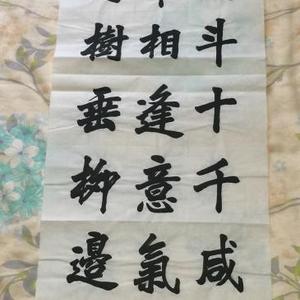 斗十千咸
相逢意氣
樹垂柳邊